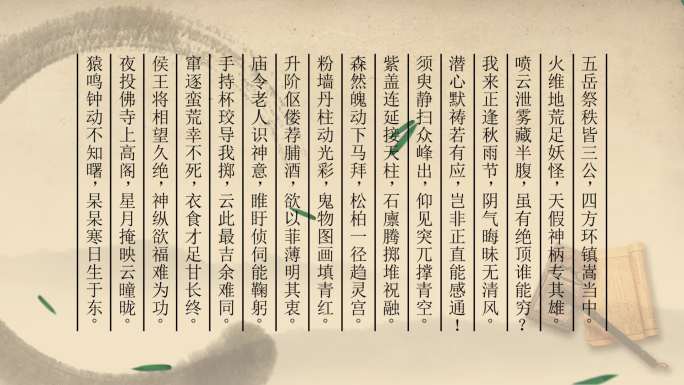 五岳祭秩皆三公，四方环镇嵩当中。
火维地荒足妖怪，天假神柄专其雄。
喷云泄雾藏半腹，虽有绝顶谁能穷？
我来正逢秋雨节，阴气晦昧无清风。
潜心默祷若有应，岂非正直能感通！
须臾静扫众峰出，仰见突兀撑青空。
紫盖连延接天柱，石廪腾掷堆祝融。
森然魄动下马拜，松柏一径趋灵宫。
粉墙丹柱动光彩，鬼物图画填青红。
升阶伛偻荐脯酒，欲以菲薄明其衷。
庙令老人识神意，睢盱侦伺能鞠躬。
手持杯珓导我掷，云此最吉余难同。
窜逐蛮荒幸不死，衣食才足甘长终。
侯王将相望久绝，神纵欲福难为功。
夜投佛寺上高阁，星月掩映云曈昽。
猿鸣钟动不知曙，杲杲寒日生于东。